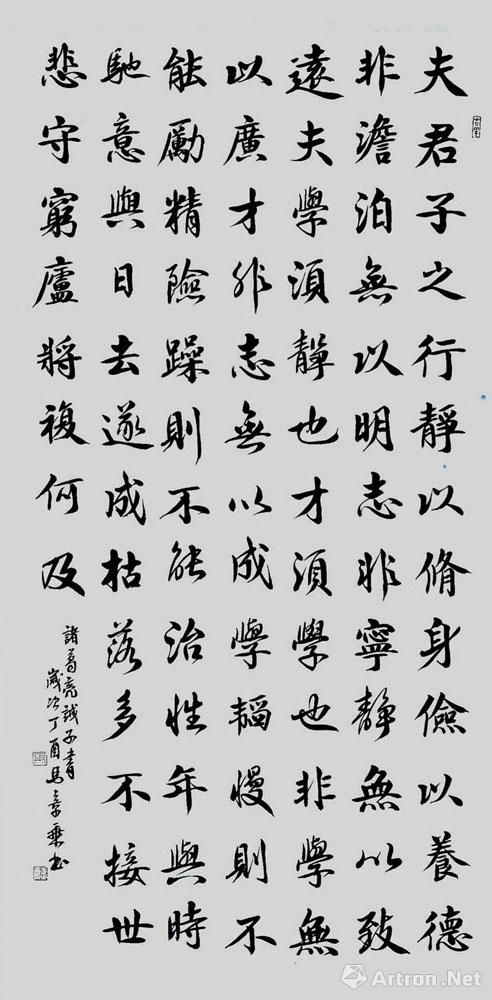 夫君子之行靜以脩身儉以養德
非澹泊無以明志非寧靜無以致
遠夫學須靜也才須學也非學無
以廣才非志無以成學韜慢則不
能勵精險躁則不能治性年與時
馳意與日去遂成枯落多不接世
悲守窮廬將複何及
諸葛亮誡子書
歲次丁酉馬章乘书
Artron.Net